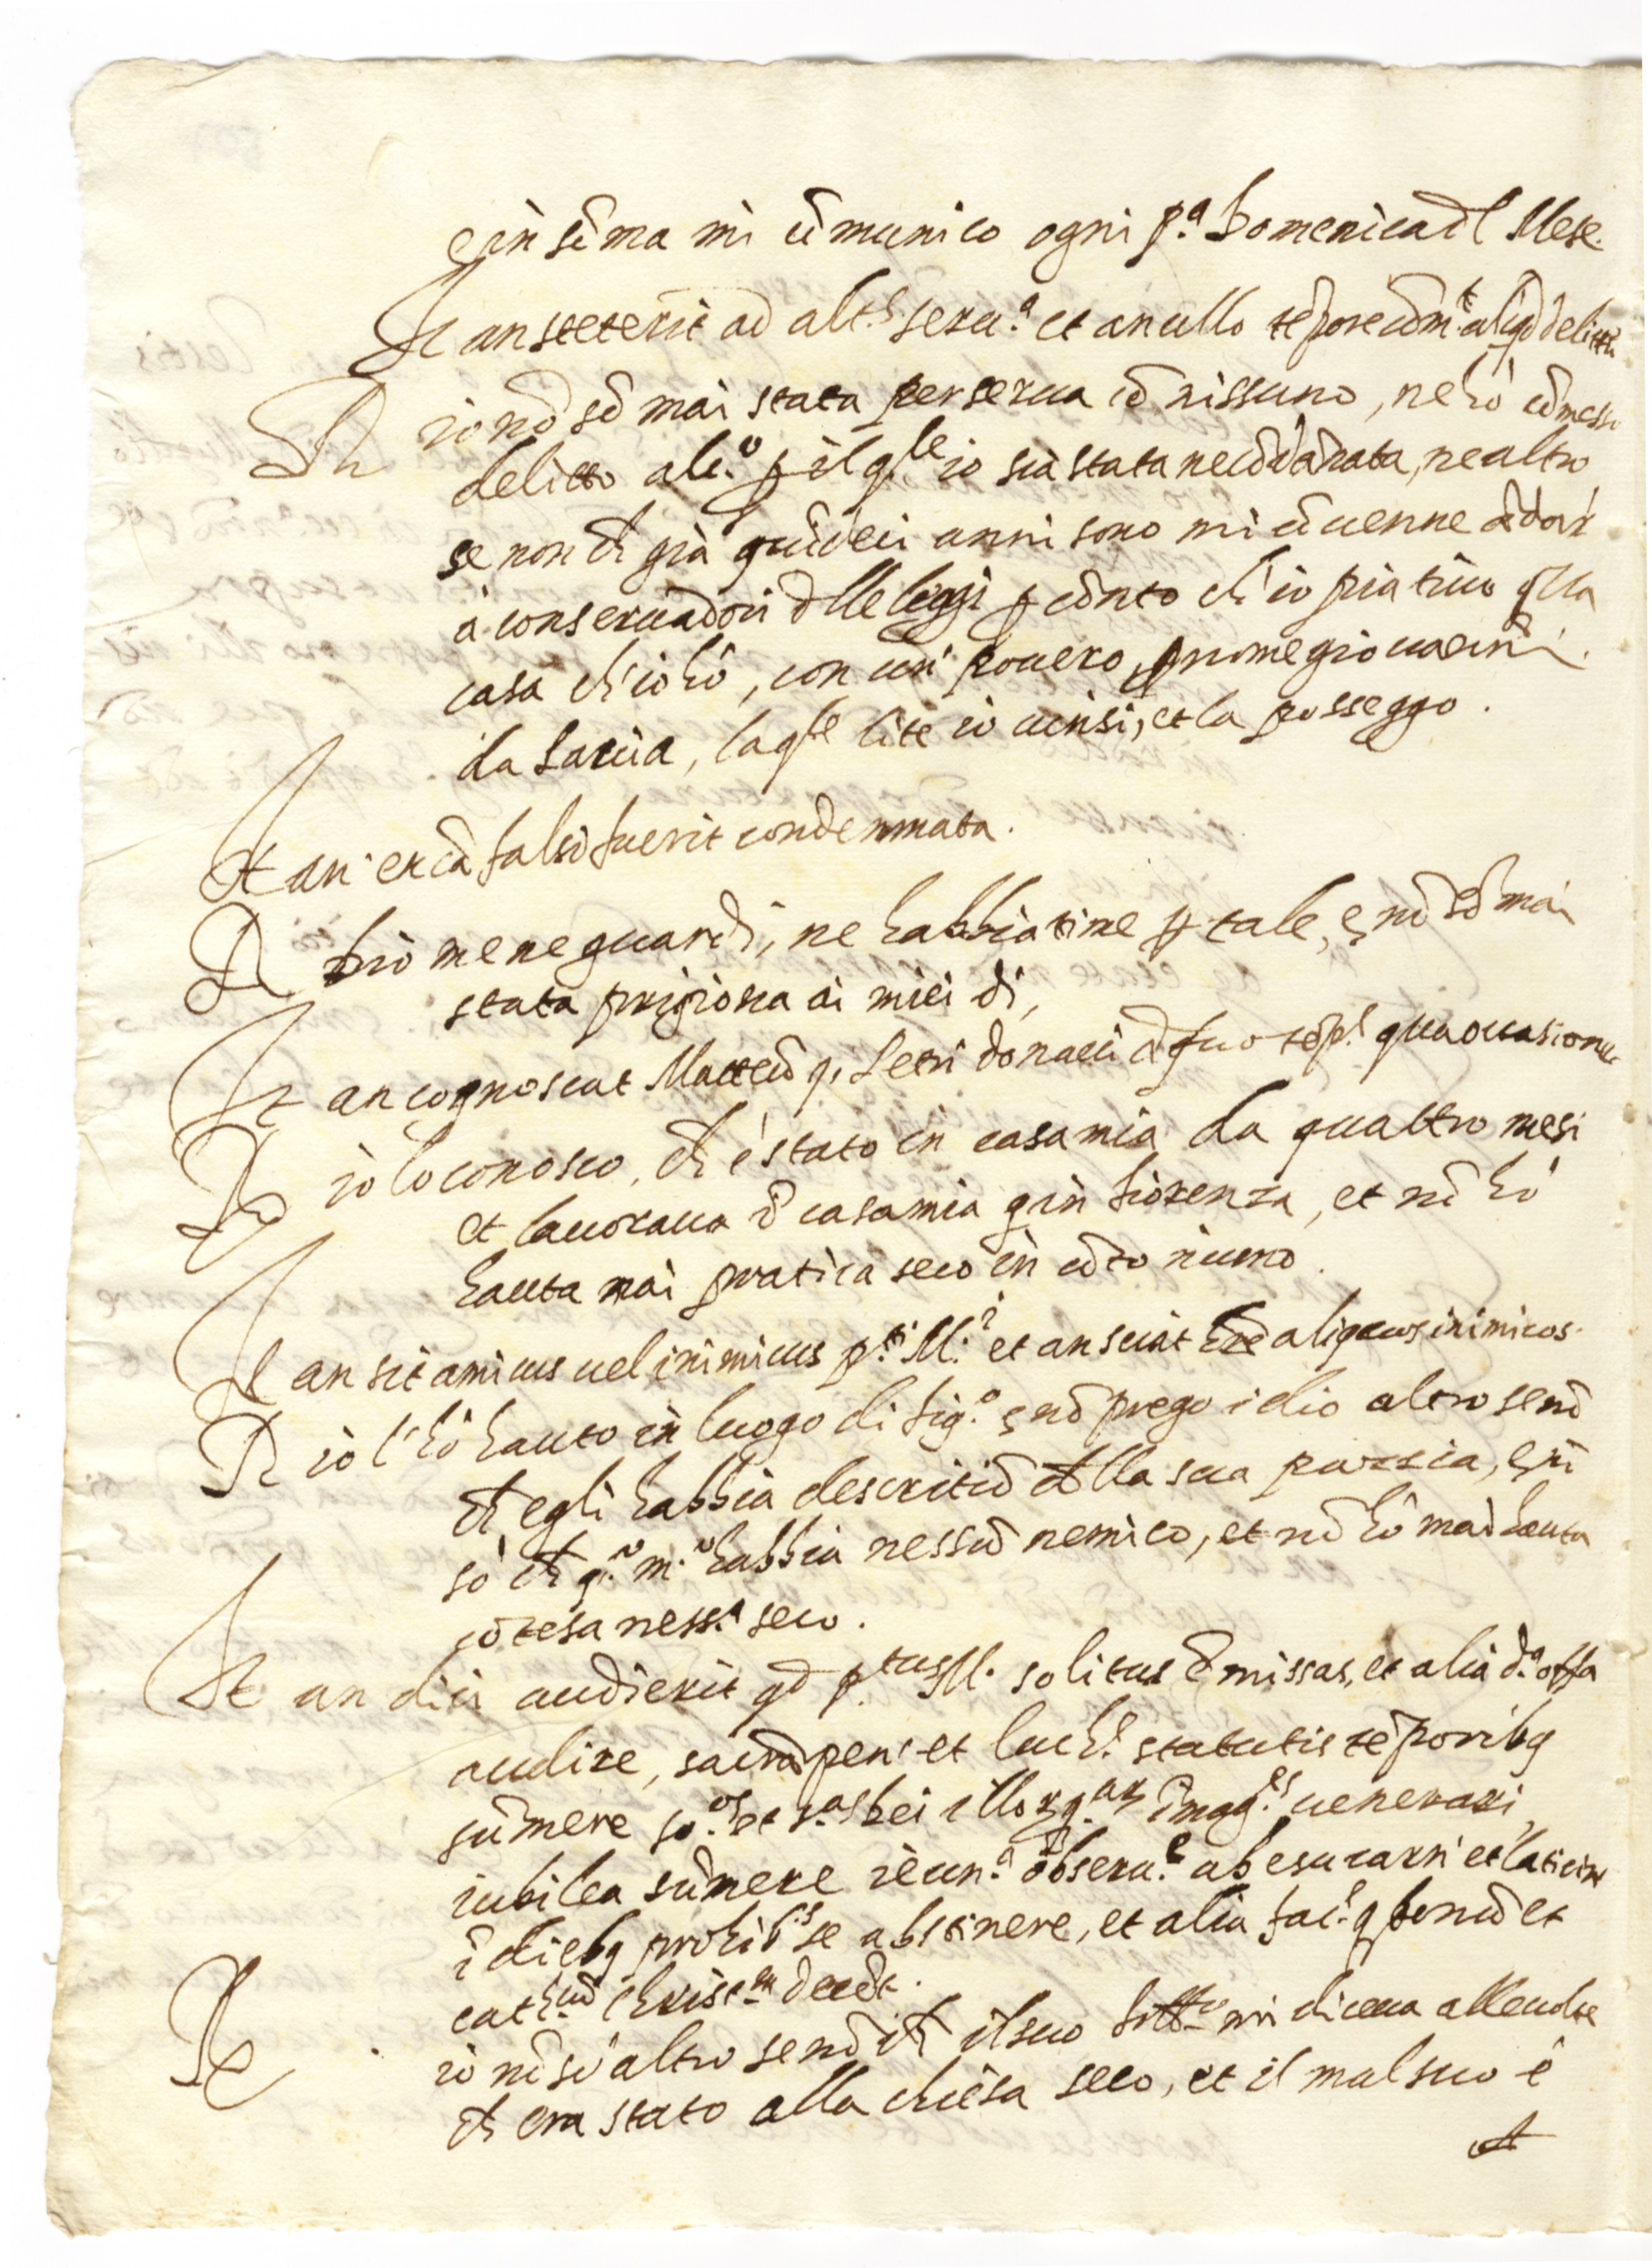 e in sūma mi cōmunico ogni p.ª Domenica d̄l Mese.
It an steterit ad alt.s seru.ª et an ullo tēpore cōm.t aliqd̄ delittū
R io nō sō mai stata per serua cō nissuno, ne hò cōmesso
delitto alc.º p il q.le io sia stata ne cōdānata, ne altro
se non ch̄ già quīdeci anni sono mi cōuenne ādar
à conseruadori d̄lle leggi p cōnto ch'io piatiuo q̄lla
casa ch'io hò, con un' pouero, p nome giouanni
da Lariia, laq.le lite io uinsi, et la posseggo.
It an' ex cā falsi fuerit condemnata.
R Dio me ne guardi, ne habbiatime p tale, e nō sō mai
stata prigiona ai miei dì,
It an cognoscat Matteū q. Petri donati a quo tēp.e qua occasione
R io lo conosco, ch̄ è stato in casa mia da quattro mesi
et lauoraua ī casa mia q in fiorenza, et nō hò
hauta mai pratica seco in cōto niuno.
It an sit amicus uel inimicus p.ti M.i et an sciat h̄re aliquos inimicos.
R io l'hò hauto in luogo di fig.º e nō prego idio altro se nō
ch̄ egli habbia descritiō d̄lla sua pazzia, e nō
sò ch̄ q.º m.º habbia nessū nemico, et nō hò mai hauta
cōtesa ness.ª seco.
It an dici audierit qd̄ p.tus M. solitus ē missas, et alia d.ª offa
audire, sacrā pen.e et Euch.e statutis tēporibq
sūmere so.os et s.as Dei illorq.ar īmag.es uenerari,
iubilea sūmere ieiun.a obseru.e ab esu carni et laticin
ī diebq prohib.s se abstinere, et alia fac.e q bonū et
cath.cū Christ.m decēt.
R io nō sò altro se nō ch̄ il suo fratt.º mi diceua alleuolte
ch̄ era stato alla chiesa seco, et il mal suo è
ch̄